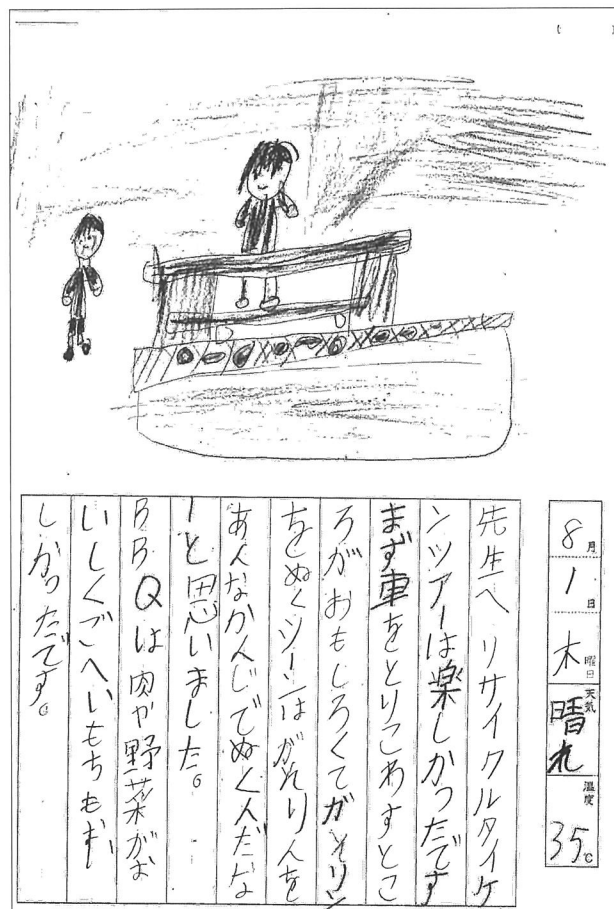 8月1日木曜日天気晴れ温度35℃
先生へ リサイクルタイケ
ンツアーは楽しかったです
まず車をとりこわすとこ
ろがおもしろくてガソリン
をぬくシーンはがそりんを
あんなかんじでぬくんだな
ーと思いました。
BBQは肉や野菜がお
いしくごへいもちもおい
しかったです。